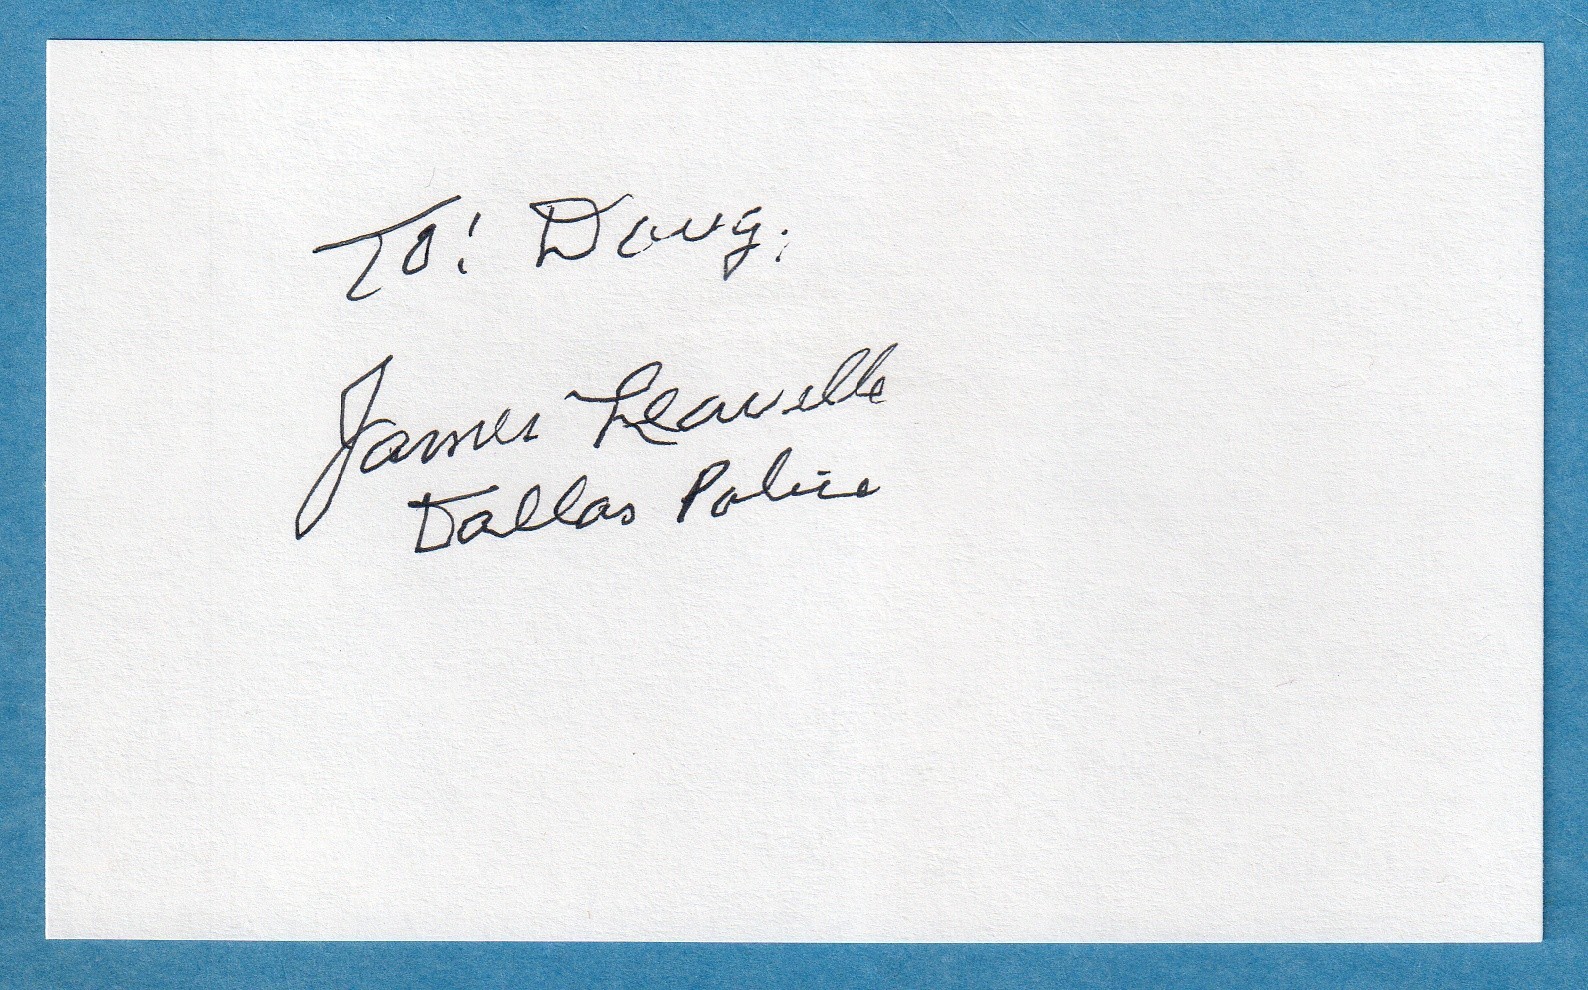 To: Doug.
James Leavelle
Dallas Police